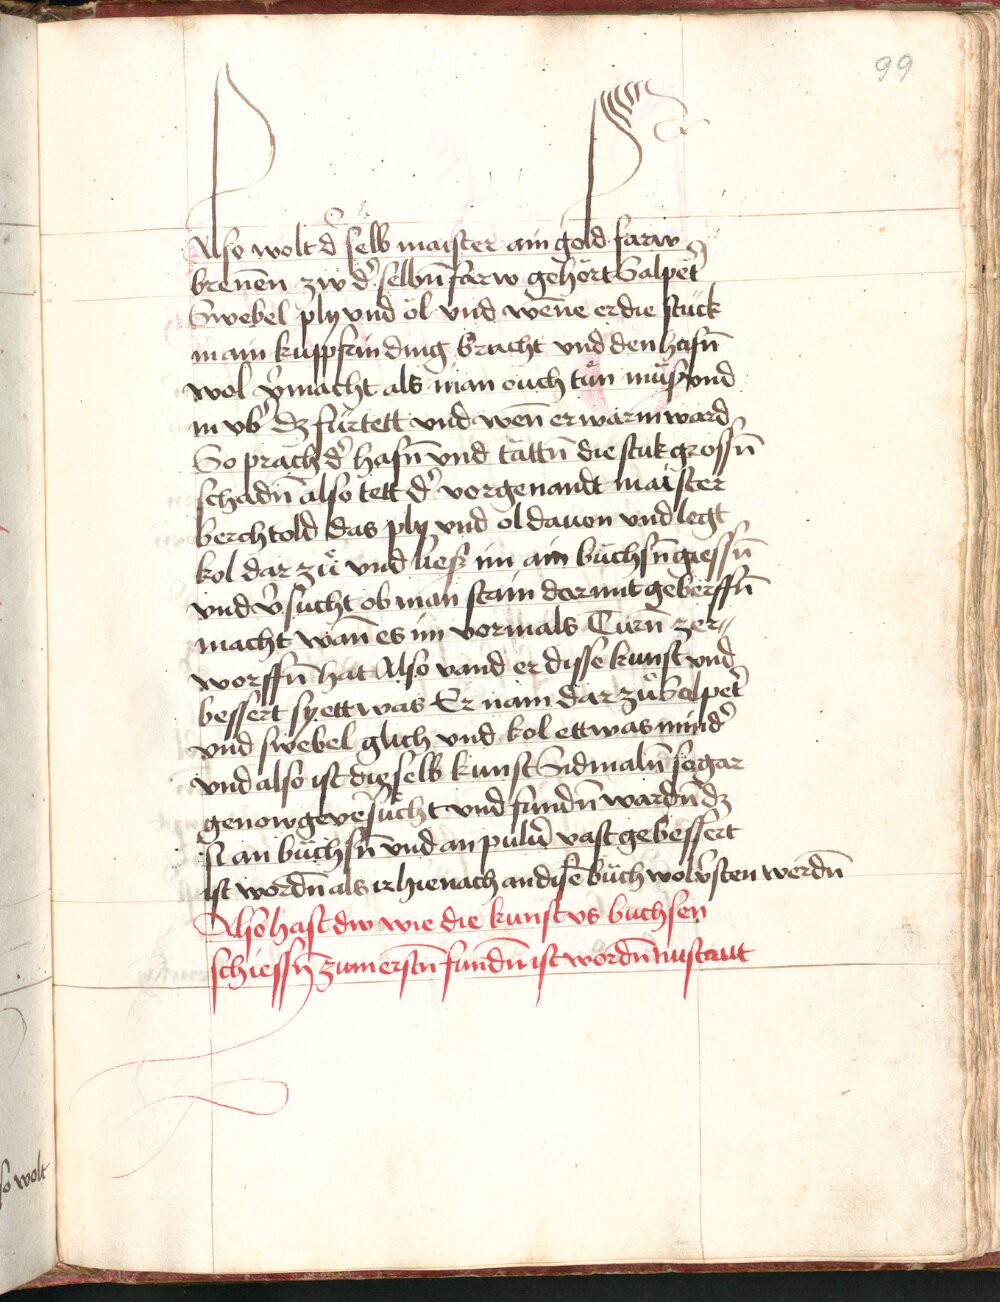 99
Also wolt d̓ selb maister ain gold farw
breñen zw d̓ selbñ farw gehört Salpet̓
Swebel ply vnd öl vnd weñe er die stuck
in ain kuppfrin ding bracht vnd den hafñ
wol v̓macht als man ouch tůn můß vnd
in vb̓ dz für tett vnd weñ er warm ward
So prach d̓ hafñ vnd tättñ die stuk grossñ
schadñ also tett d̓ vorgenandt maister
berchtold das ply vnd ol dauon vnd legt
kol dar zů vnd ließ im ain büchsñ giessñ
vnd v̓sucht ob man stain dar mit geberffñ
macht wañ es im vormals Türñ zer〃
worffñ hat Also vand er disse kunst vnd
bessert sy ettwas Er nam dar zů Salpet̓
vnd swebel glich vnd kol ettwas mind̓
vnd also ist die selb kunst Sidmalñ so gar
genow geue̓sücht vnd fundñ wardñ dz
si an büchsñ vnd an pulu̓ vast gebessert
ist wordñ als ir hienach an disẽ büch wol v̓sten werdñ
Also hast dw wie die kunst vs buchsen
schiessñ zum erstñ fundñ ist wordñ
so wolt